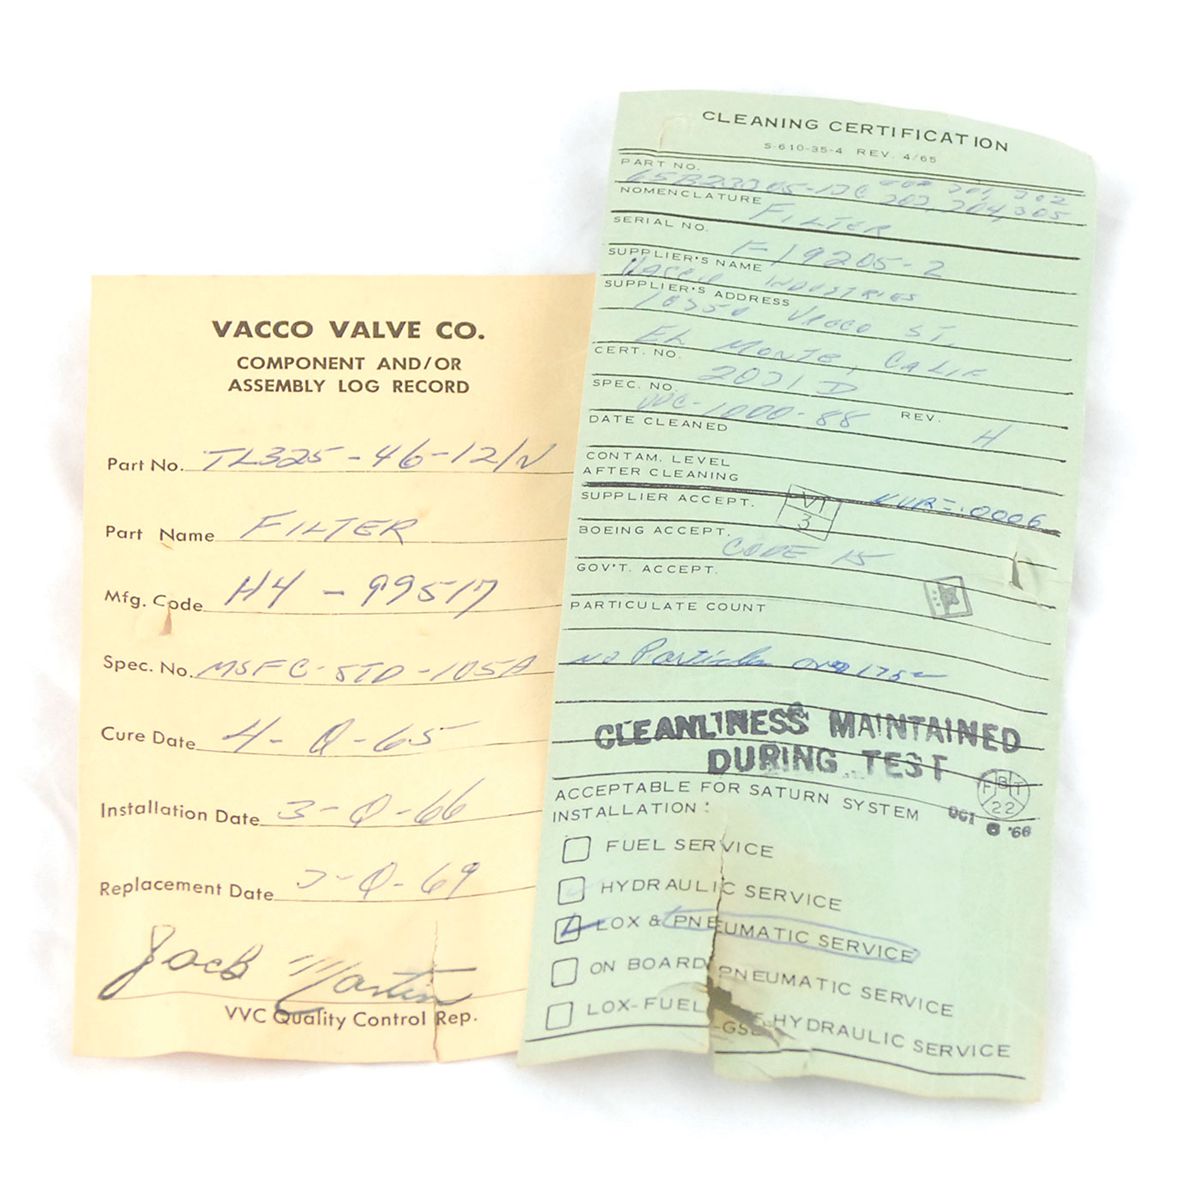 VACCO VALVE CO.
COMPONENT AND/OR
ASSEMBLY LOG RECORD
Part No. TL325-46-12/N
Part Name FILTER
Mfg. Code H4 - 99517
Spec. No. MSFC-STD-105A
Cure Date 4-Q-65
Installation Date 3-Q-66
Replacement Date 3-Q-69
Jack Martin
VVC Quality Control Rep.
CLEANING CERTIFICATION
S-610-35-4 REV. 4/65
PART NO.
201, 202
65B23305-12C 203, 204, 305
NOMENCLATURE
FILTER
SERIAL NO.
F-19205-2
SUPPLIER'S NAME
VACCO INDUSTRIES
SUPPLIER'S ADDRESS
10350 VACCO ST.
EL MONTE, CALIF
CERT. NO.
2031 D
SPEC. NO.
VVC-1000-88 REV. H
DATE CLEANED
CONTAM. LEVEL
AFTER CLEANING
NVR=.0006
SUPPLIER ACCEPT. VT 3
BOEING ACCEPT.
CODE 15
GOV'T. ACCEPT.
PARTICULATE COUNT
NO Particles over 175
CLEANLINESS MAINTAINED
DURING TEST
FBT 22
ACCEPTABLE FOR SATURN SYSTEM
INSTALLATION:
OCT 6 '66
FUEL SERVICE
HYDRAULIC SERVICE
LOX & PNEUMATIC SERVICE
ON BOARD PNEUMATIC SERVICE
LOX-FUEL HYDRAULIC SERVICE
-GSE